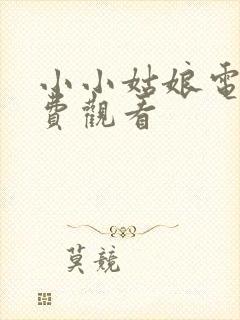 小小姑娘電
費觀看
莫競